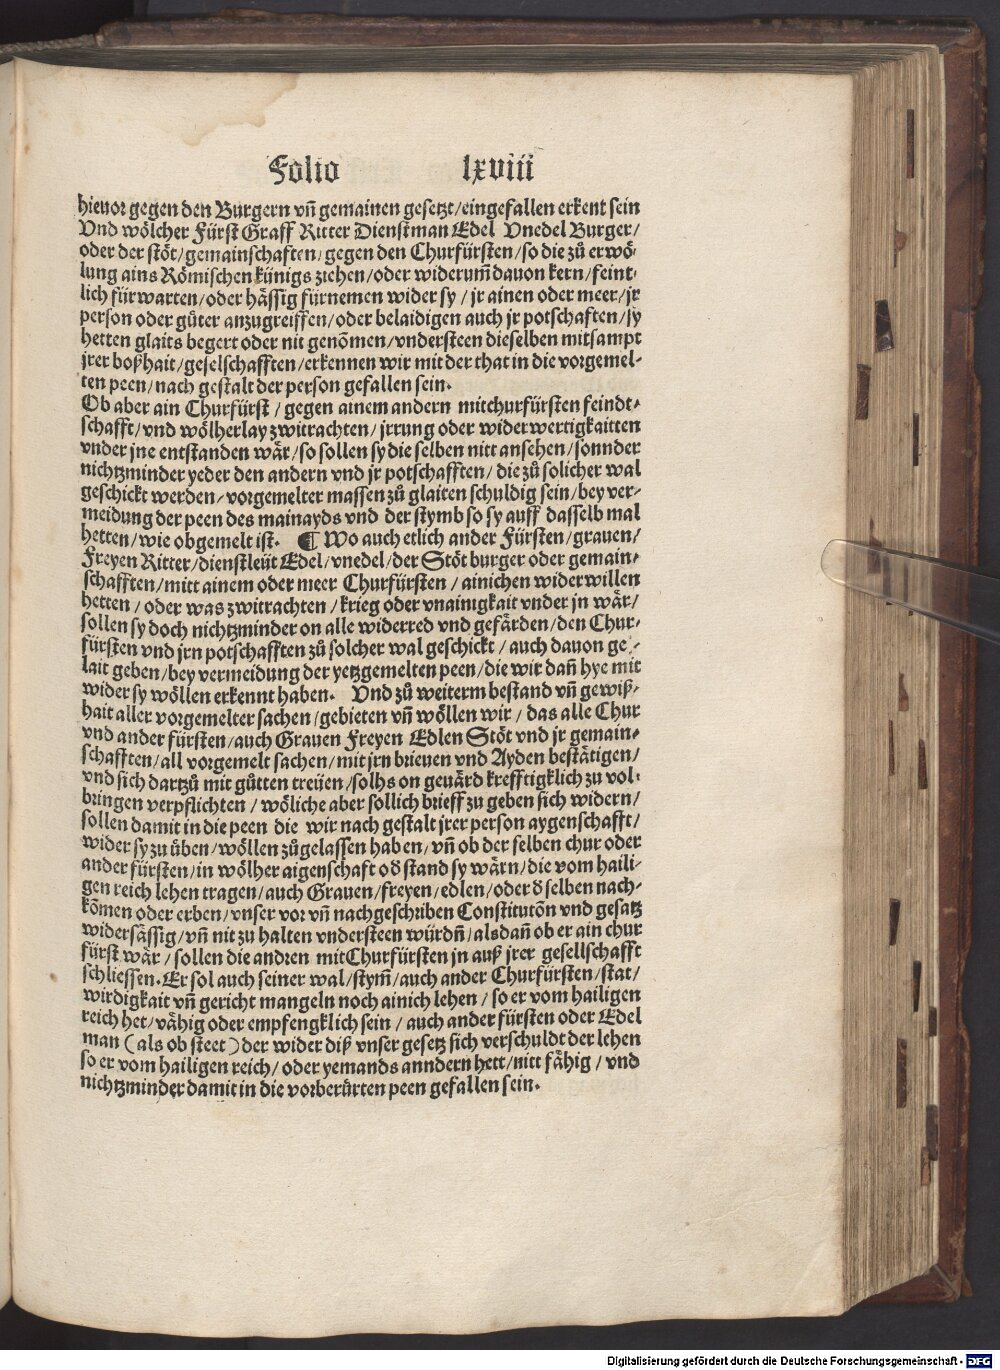 Folio lxviii
hieuor gegen den Burgern vn̄ gemainen gesetzt/eingefallen erkent sein
Vnd wölcher Fürst Graff Ritter Dienstman Edel Vnedel Burger/
oder der stöt/gemainschaften/gegen den Churfürsten/so die zů erwö⸗
lung ains Römischen künigs ziehen/oder widerum̄ dauon kern/feint⸗
lich fürwarten/oder hässig fürnemen wider sy/jr ainen oder meer/jr
person oder gůter anzugreiffen/oder belaidigen auch jr potschaften/sy
hetten glaits begert oder nit genōmen/vndersteen dieselben mitsampt
jrer boßhait/geselschafften/erkennen wir mit der that in die vorgemel⸗
ten peen/nach gestalt der person gefallen sein.
Ob aber ain Churfürst/gegen ainem andern mitchurfürsten feindt⸗
schafft/vnd wölherlay zwitrachten/jrrung oder widerwertigkaitten
vnder jne entstanden wär/so sollen sy die selben nitt ansehen/sonnder
nichtzminder yeder den andern vnd jr potschafften/die zů solicher wal
geschickt werden/vorgemelter massen zů glaiten schuldig sein/bey ver⸗
meidung der peen des mainayds vnd der stymb so sy auff dasselb mal
hetten/wie obgemelt ist. ¶ Wo auch etlich ander Fürsten/grauen/
Freyen Ritter/dienstleüt Edel/vnedel/der Stöt burger oder gemain⸗
schafften/mitt ainem oder meer Churfürsten/ainichen widerwillen
hetten/oder was zwitrachten/krieg oder vnainigkait vnder jn wär/
sollen sy doch nichtzminder on alle widerred vnd gefärden/den Chur⸗
fürsten vnd jrn potschafften zů solcher wal geschickt/auch dauon ge⸗
lait geben/bey vermeidung der yetzgemelten peen/die wir dan̄ hye mit
wider sy wöllen erkennt haben. Vnd zů weiterm bestand vn̄ gewiß⸗
hait aller vorgemelter sachen/gebieten vn̄ wöllen wir/das alle Chur
vnd ander fürsten/auch Grauen Freyen Edlen Stöt vnd jr gemain⸗
schafften/all vorgemelt sachen/mit jrn brieuen vnd Ayden bestätigen/
vnd sich dartzů mit gůtten treüen/solhs on geuärd krefftigklich zu vol⸗
bringen verpflichten/wöliche aber sollich brieff zu geben sich widern/
sollen damit in die peen die wir nach gestalt jrer person aygenschafft/
wider sy zu üben/wöllen zůgelassen haben/vn̄ ob der selben chur oder
ander fürsten/in wölher aigenschaft oď stand sy wärn/die vom haili⸗
gen reich lehen tragen/auch Grauen/freyen/edlen/oder ď selben nach⸗
kōmen oder erben/vnser vor vn̄ nachgeschriben Constitutōn vnd gesatz
widersässig/vn̄ nit zu halten vndersteen würdn̄/alsdan̄ ob er ain chur
fürst wär/sollen die andren mitChurfürsten jn auß jrer gesellschafft
schliessen. Er sol auch seiner wal/stym̄/auch ander Churfürsten/stat/
wirdigkait vn̄ gericht mangeln noch ainich lehen/so er vom hailigen
reich het/vähig oder empfengklich sein/auch ander fürsten oder Edel
man (als ob steet) der wider diß vnser gesetz sich verschuldt der lehen
so er vom hailigen reich/oder yemands anndern hett/nitt fähig/vnd
nichtzminder damit in die vorberürten peen gefallen sein.
Digitalisierung gefördert durch die Deutsche Forschungsgemeinschaft - DFG